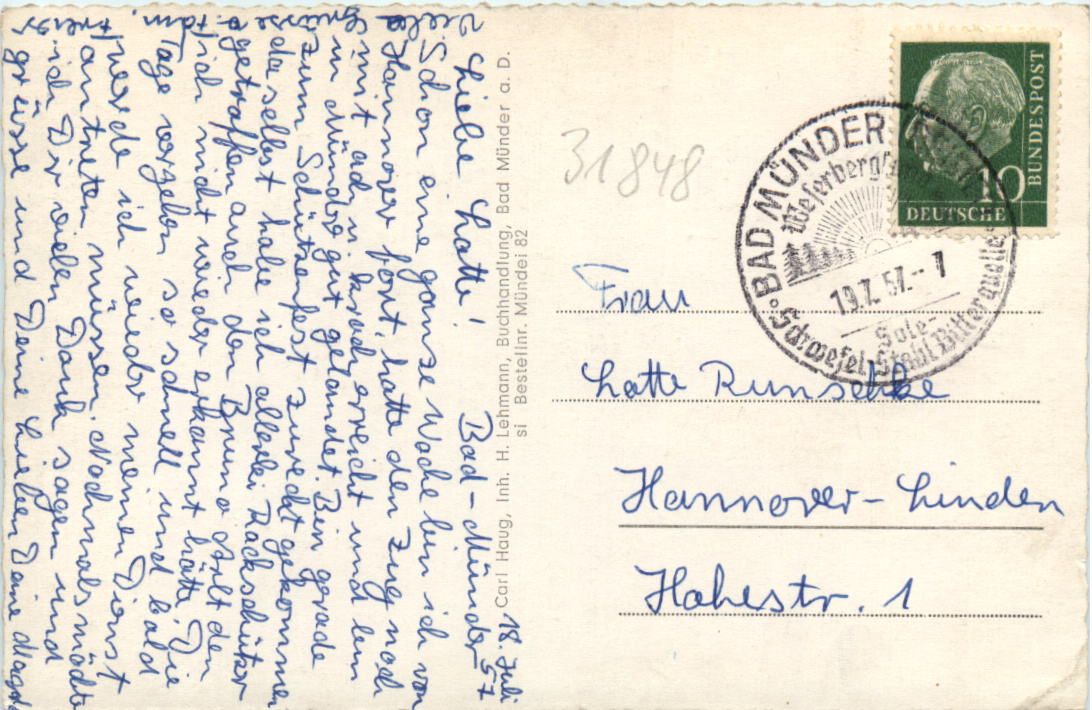 Bad-Münder
18. Juli 57
Liebe Lotte!
Schon eine ganze Woche bin ich von
Hannover fort, hatte den Zug noch
mit ach u. krach erreicht und bin
in Münder gut gelandet. Bin gerade
zum Schützenfest zurecht gekommen
daselbst habe ich allerlei Rackschüker
getroffen auch den Bruno Arlt den
ich nicht wieder erkannt hätte. Die
Tage vergehen so schnell und bald
werde ich wieder meinen Dienst
antreten müssen. Nochmals möchte
ich Dir vielen Dank sagen und
grüsse und Deine Lieben Deine Magda
Viele
Grüsse
Carl Haug, Inh. H. Lehmann, Buchhandlung, Bad Münder a. D.
si Bestellnr. Mündei 82
31848
BAD MÜNDER
Weserbergland
19.7.57.-7
Sole-
Schwefel-Stahl Bitterquelle
DEUTSCHE
BUNDESPOST
10
Frau
Lotte Runschke
Hannover-Linden
Hohestr. 1